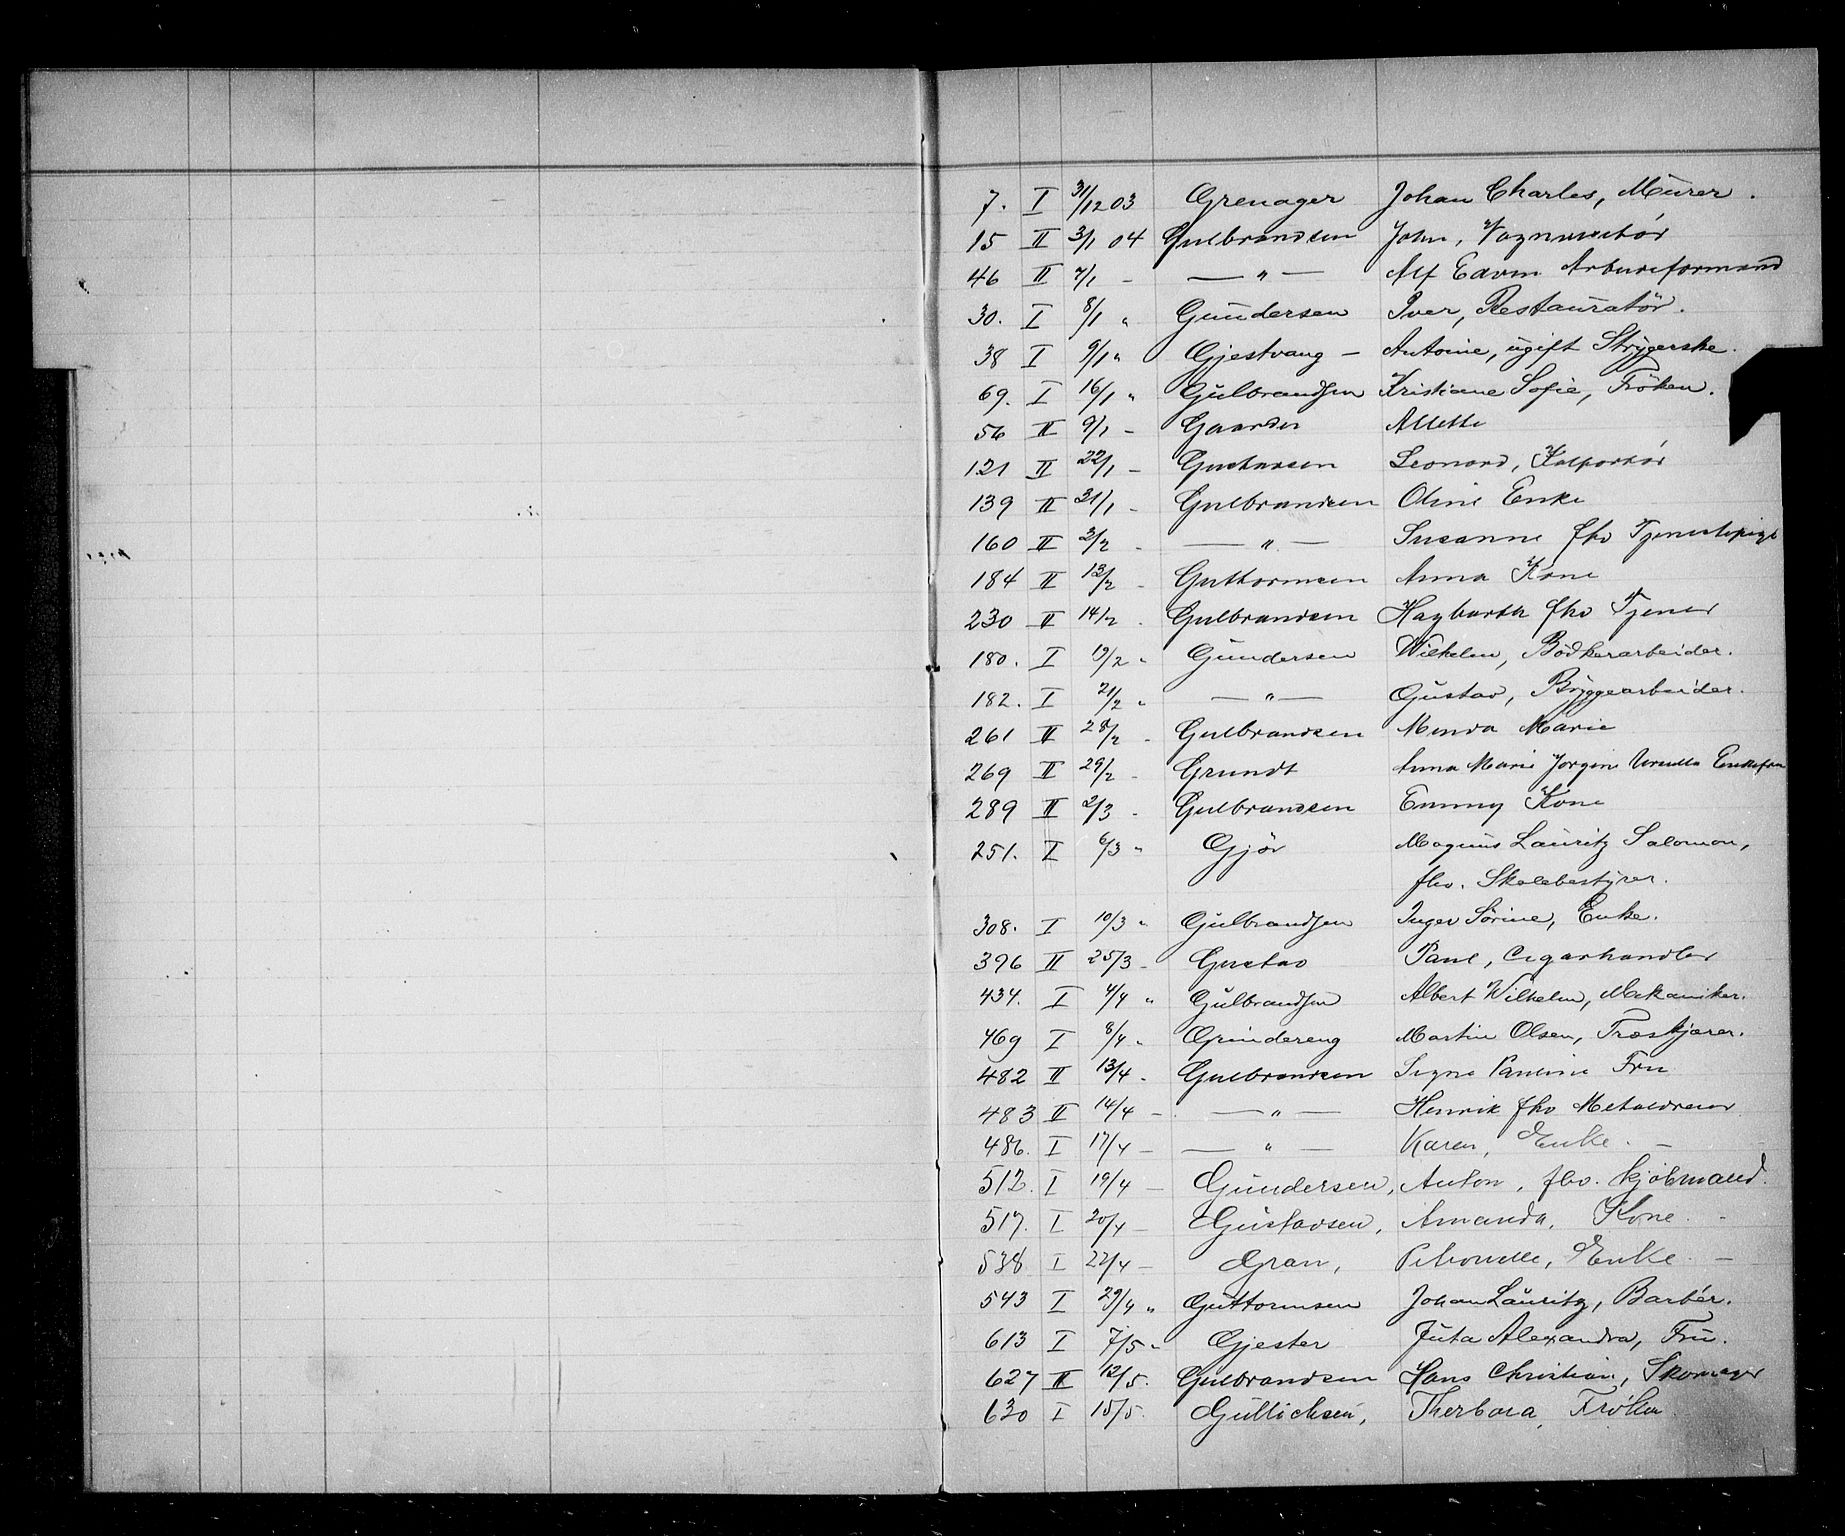 7. I 31/12 03 Grenager Johan Charles, Mürer.
15 II 3/1 04 Gulbrandsen John, Vognvisitør
46 II 7/1 - — " — Alf Edvin Arbeidsformand
30. I 8/1 " Gundersen Iver, Restauratör.
38 I 9/1 " Gjestvang - Antoine, ugift Strygerske.
69. I 16/1 " Gülbrandsen Kristiane Sofie, Fröken.
56 II 9/1 - Gaarder Allette
121 II 22/1 - Gustavsen Leonard, Kolportør
139 II 31/1 - Gulbrandsen Oline Enke
160 II 3/2 - — " — Susanne fhv Tjenestepige
184 II 13/2 - Guttormsen Anna Kone
230 II 14/2 - Gulbrandsen Hagbarth fhv Tjener
180. I 19/2 " Gundersen Wilhelm, Bödkerarbeider.
182. I 21/2 " — " — Gustav, Bryggearbeider.
261 II 28/2 - Gulbrandsen Minda Marie
269 II 29/2 - Grundt Anna Marie Jørgine Enkefru
289 II 2/3 - Gulbrandsen Emmy Kone
251. I 6/3 " Gjör Magnus Lauritz Salomon,
fhv. Skolebestyrer.
308. I 10/3 " Gülbrandsen Inger Sörine, Enke.
396 II 25/3 - Gustav Paul, Cigarhandler
434. I 4/4 " Gülbrandsen Albert Wilhelm, Mekaniker.
469 I 8/4 " Grindereng Martin Olsen, Træskjærer.
482 II 13/4 - Gulbrandsen Signe Pauline Fru
483 II 14/4 - — " — Henrik fhv Metaldreier
486. I 17/4 - — " — Karen, Enke. -
512. I 19/4 - Gundersen, Anton, fhv. Kjøbmand.
517. I 20/4 - Gustavsen, Amanda, Kone. -
538 I 22/4 - Gran, Petronelle, Enke -
543 I 29/4 " Guttormsen Johan Lauritz, Barbér.
613 I 7/5 " Gjester Juta Alexandra, Frü.
627 II 12/5. Gulbrandsen Hans Christian, Skomager
630 I 15/5. Gullichsen, Therbora, Frøken